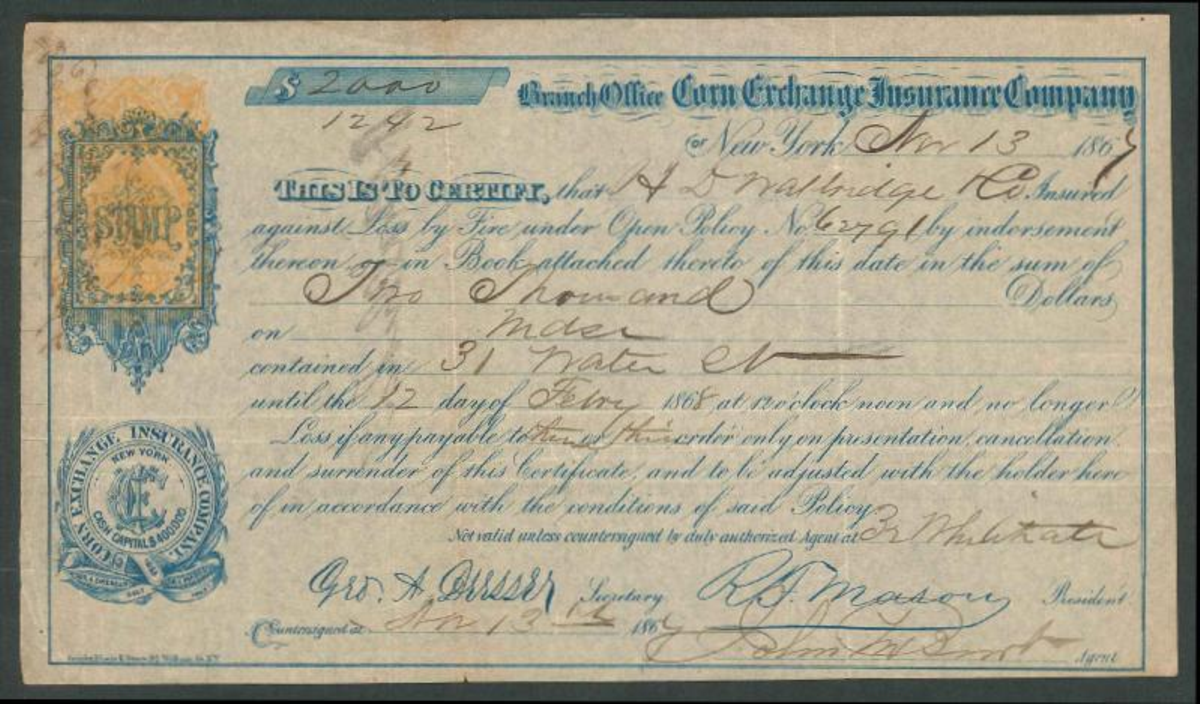 $ 2000
1242
Branch Office Corn Exchange Insurance Company
of New York Nov 13 1867
STAMP
THIS IS TO CERTIFY, that H D Walbridge & Co Insured
against Loss by Fire under Open Policy No. 62791 by indorsement
thereon or in Book attached thereto of this date in the sum of
Two Thousand Dollars
on Mdse
contained in 31 Water St
until the 12 day of Febry 1868 at 12 o'clock noon and no longer
Loss if any payable to them or their order only on presentation, cancellation,
and surrender of this Certificate, and to be adjusted with the holder here
of in accordance with the conditions of said Policy.
Not valid unless countersigned by duly authorized Agent at
CORN EXCHANGE INSURANCE COMPANY.
NEW YORK
CASH CAPITAL $400,000
Geo. A. Dresser Secretary R. F. Mason President
Countersigned at Nov 13th 1867
John Agent